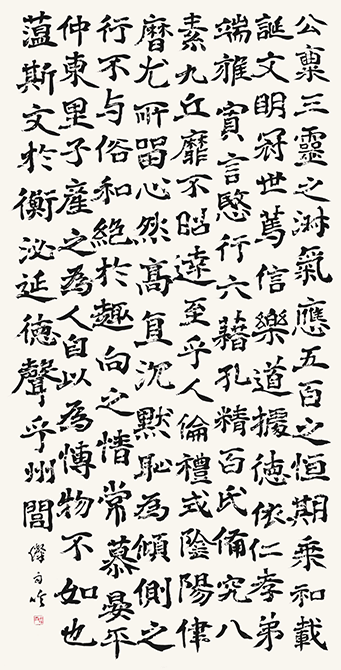 公稟三靈之淑氣應五百之恒期乘和載
誕文明冠世篤信樂道據德依仁孝弟
端雅實言慜行六籍孔精百氏備究八
素九丘靡不昭達至乎人倫禮式陰陽律
曆尤所留心然高直沉默恥為傾側之
行不与俗和絕於趣向之情常慕晏平
仲東里子產之為人自以為博物不如也
薀斯文於衡泌延德聲乎州閭